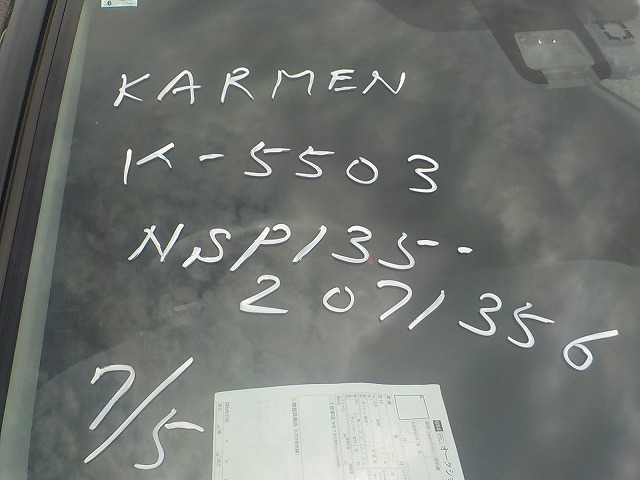 KARMEN
K-5503
NSP135-
2071356
7/5
オークシ